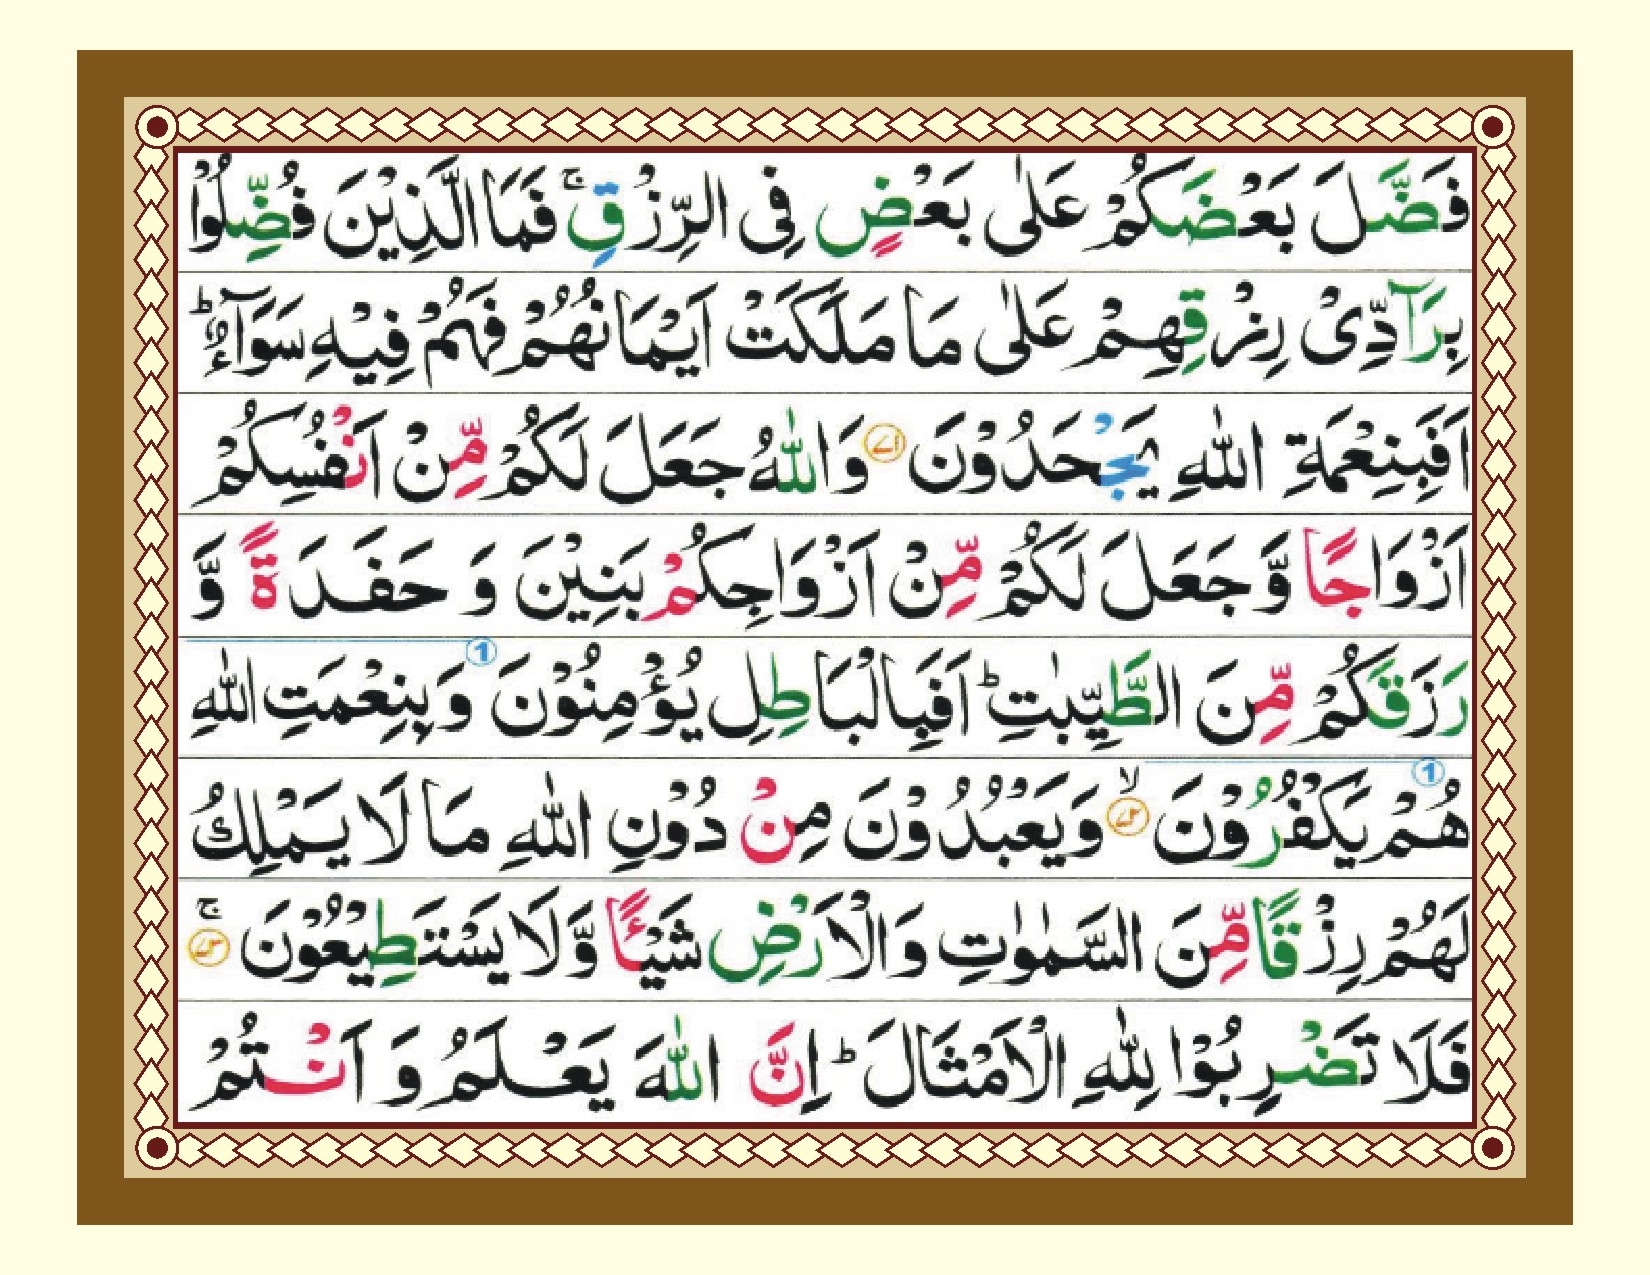 فَضَّلَ بَعْضَكُمْ عَلٰى بَعْضٍ فِى الرِّزْقِ ۚ فَمَا الَّذِيْنَ فُضِّلُوْا
بِرَآدِّىْ رِزْقِهِمْ عَلٰى مَا مَلَكَتْ اَيْمَانُهُمْ فَهُمْ فِيْهِ سَوَآءٌ ؕ
اَفَبِنِعْمَةِ اللّٰهِ يَجْحَدُوْنَ ﴿۷۱﴾ وَاللّٰهُ جَعَلَ لَكُمْ مِّنْ اَنْفُسِكُمْ
اَزْوَاجًا وَّجَعَلَ لَكُمْ مِّنْ اَزْوَاجِكُمْ بَنِيْنَ وَ حَفَدَةً وَّ
رَزَقَكُمْ مِّنَ الطَّيِّبٰتِ ؕ اَفَبِالْبَاطِلِ يُؤْمِنُوْنَ ① وَبِنِعْمَتِ اللّٰهِ
هُمْ ① يَكْفُرُوْنَ ﴿۷۲﴾ ۙ وَيَعْبُدُوْنَ مِنْ دُوْنِ اللّٰهِ مَا لَا يَمْلِكُ
لَهُمْ رِزْقًا مِّنَ السَّمٰوٰتِ وَالْاَرْضِ شَيْـًٔا وَّلَا يَسْتَطِيْعُوْنَ ﴿۷۳﴾ ۚ
فَلَا تَضْرِبُوْا لِلّٰهِ الْاَمْثَالَ ؕ اِنَّ اللّٰهَ يَعْلَمُ وَ اَنْتُمْ